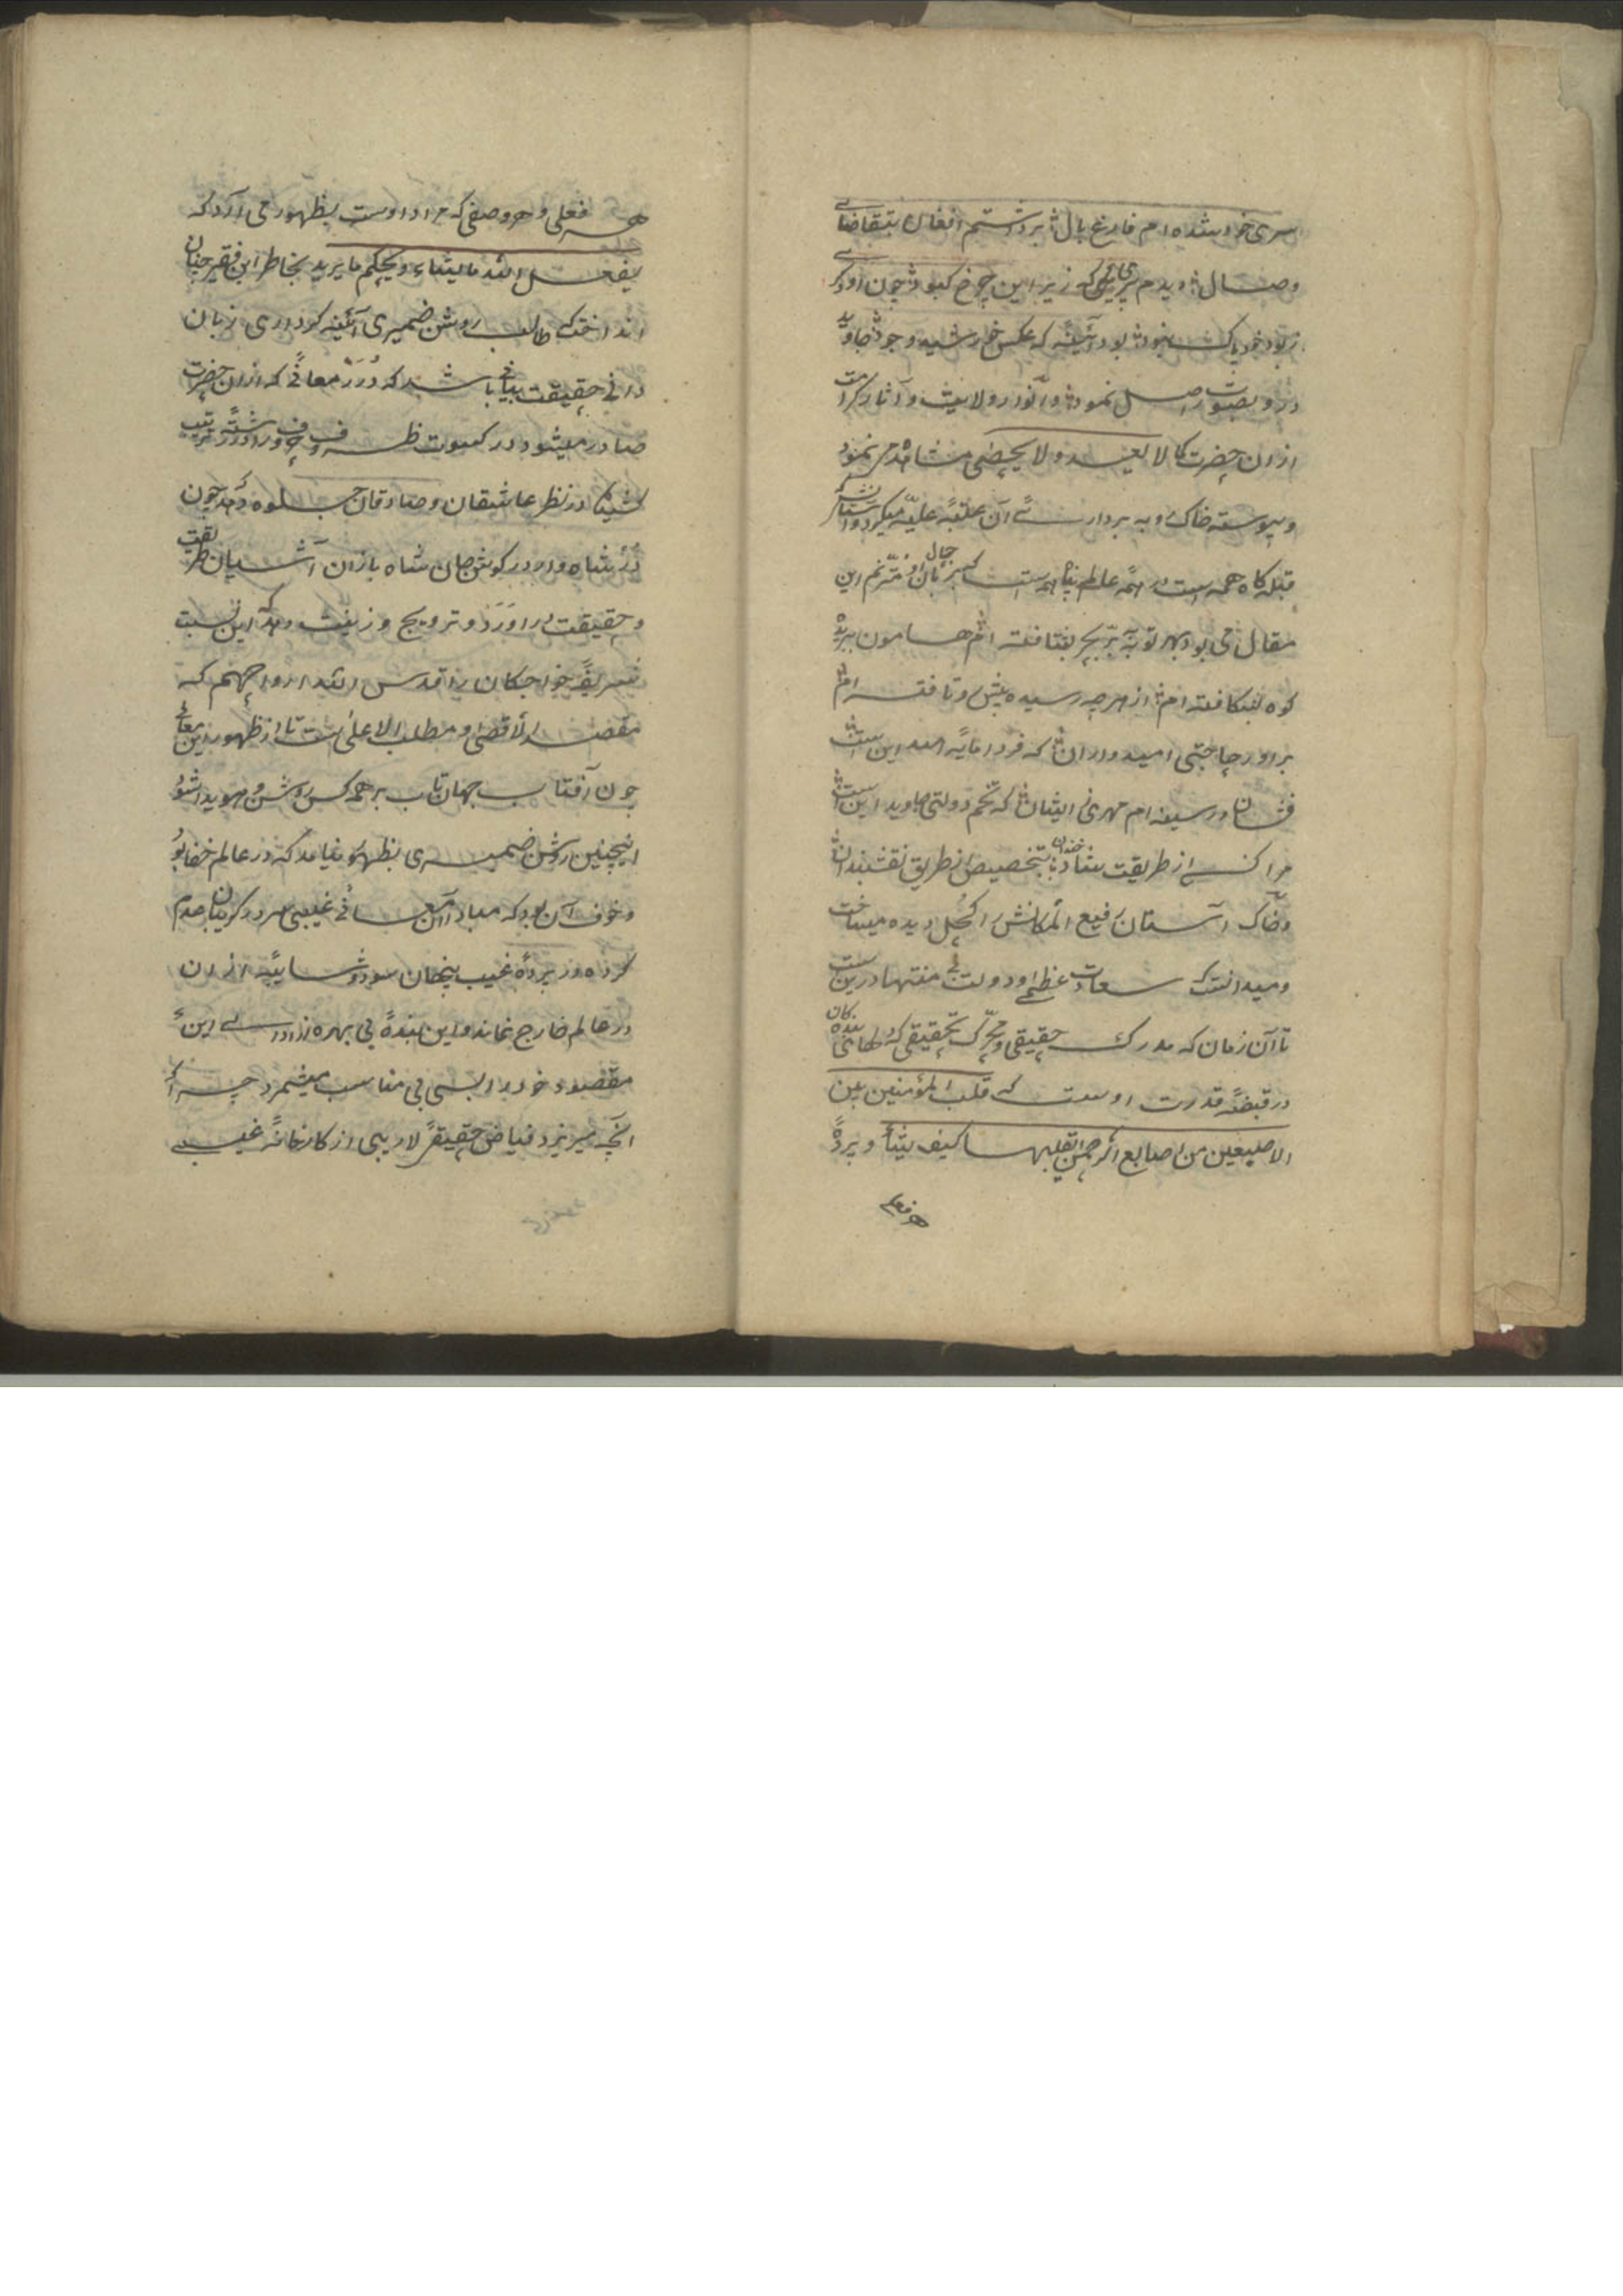 سری خود شده ام فارغ بال برداشتم افغان بتقاضای
وصال دیدم پیری که زیر این چرخ کبود چون او دگری
ز بود خود پاک نبود بود آئینه که عکس خورشید وجود جاوید
در و بصورت اصل نمود و انوار ولایت و آثار کرامت
ازان حضرت کما لا یعد و لا یحصی مشاهده می نمود
و پیوسته خاک روبه بردار آن عتبه علیه میکرد و
قبله گاه همه است در همه عالم پناه همه است بزبان حال او مترنم این
مقال می بود بهر تو بره بر و بحر بشتافته ام هامون ببریده
کوه بشکافته ام از هر چه رسیده پیش رو تافته ام
براور حاجتی امیدواران که فردا مایه امید این است
فشان در سینه ام مهری ز ایشان که تخم دولتی جاوید این است
مرا کسی از طریقت بتخصیص از طریق نقشبندان
و خاک آستان رفیع المکانش را کحل دیده میساخت
و میدانست که سعادت عظمی و دولت بی منتها درین است
تا آن زمان که مدرک حقیقی و محرک تحقیقی که دلهای بندگان
در قبضه قدرت اوست که قلب المؤمنین بین
الاصبعین من اصابع الرحمن یقلبها کیف یشأ و پرده
هر فعلی
هر فعلی و هر وصفی که مراد اوست بظهور می آرد که
یفعل الله ما یشاء و یحکم ما یرید بخاطر این فقیر چنان
انداخت که طالب روشن ضمیری آئینه کرداری زبان
دانی حقیقت بیانی باشد که درر معانی که ازان حضرت
صادر میشود در کسوت ظروف حروف در اورده ترتیب
در نظر عاشقان و صادقان جلوه دهد چون
در شاه وار در گوش جان شاه بازان آشیان طریقت
و حقیقت در اورد و ترویج و زینت دهد که این نسبت
شریفه خواجگان را قدس الله ارواحهم که
مقصد الاقصی و مطلب الاعلی ست تا از ظهور این معانی
چون آفتاب جهان تاب بر همه کس روشن و هویدا شود
اینچنین روشن ضمیری بظهور نیامد که در عالم خفا بود
و خوف آن بود که مبادا آن معانی غیبی سر در گریبان عدم
کرده در پرده غیب پنهان شود و شایبه ازان
در عالم خارج نماند و این بنده بی بهره از ادای این
مقصود خود را بسی بی مناسب میشمرد چرا که
انچه میریزد فیاض حقیقه لاریبی از کارخانه غیبی